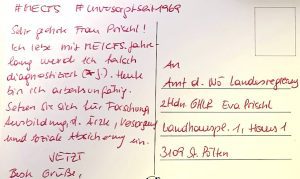 #MECFS #unversorgtseit1969
Sehr geehrte Frau Prischl!
Ich lebe mit ME/CFS. Jahre
lang wurde ich falsch
diagnostiziert (). Heute
bin ich arbeitsunfähig.
Setzen Sie sich für Forschung
Ausbildung d. Ärzte, Versorgung
und soziale Absicherung ein.
JETZT
Beste Grüße,
An
Amt d. NÖ Landesregierung
zHdn GHLR Eva Prischl
Landhauspl. 1, Haus 1
3109 St. Pölten